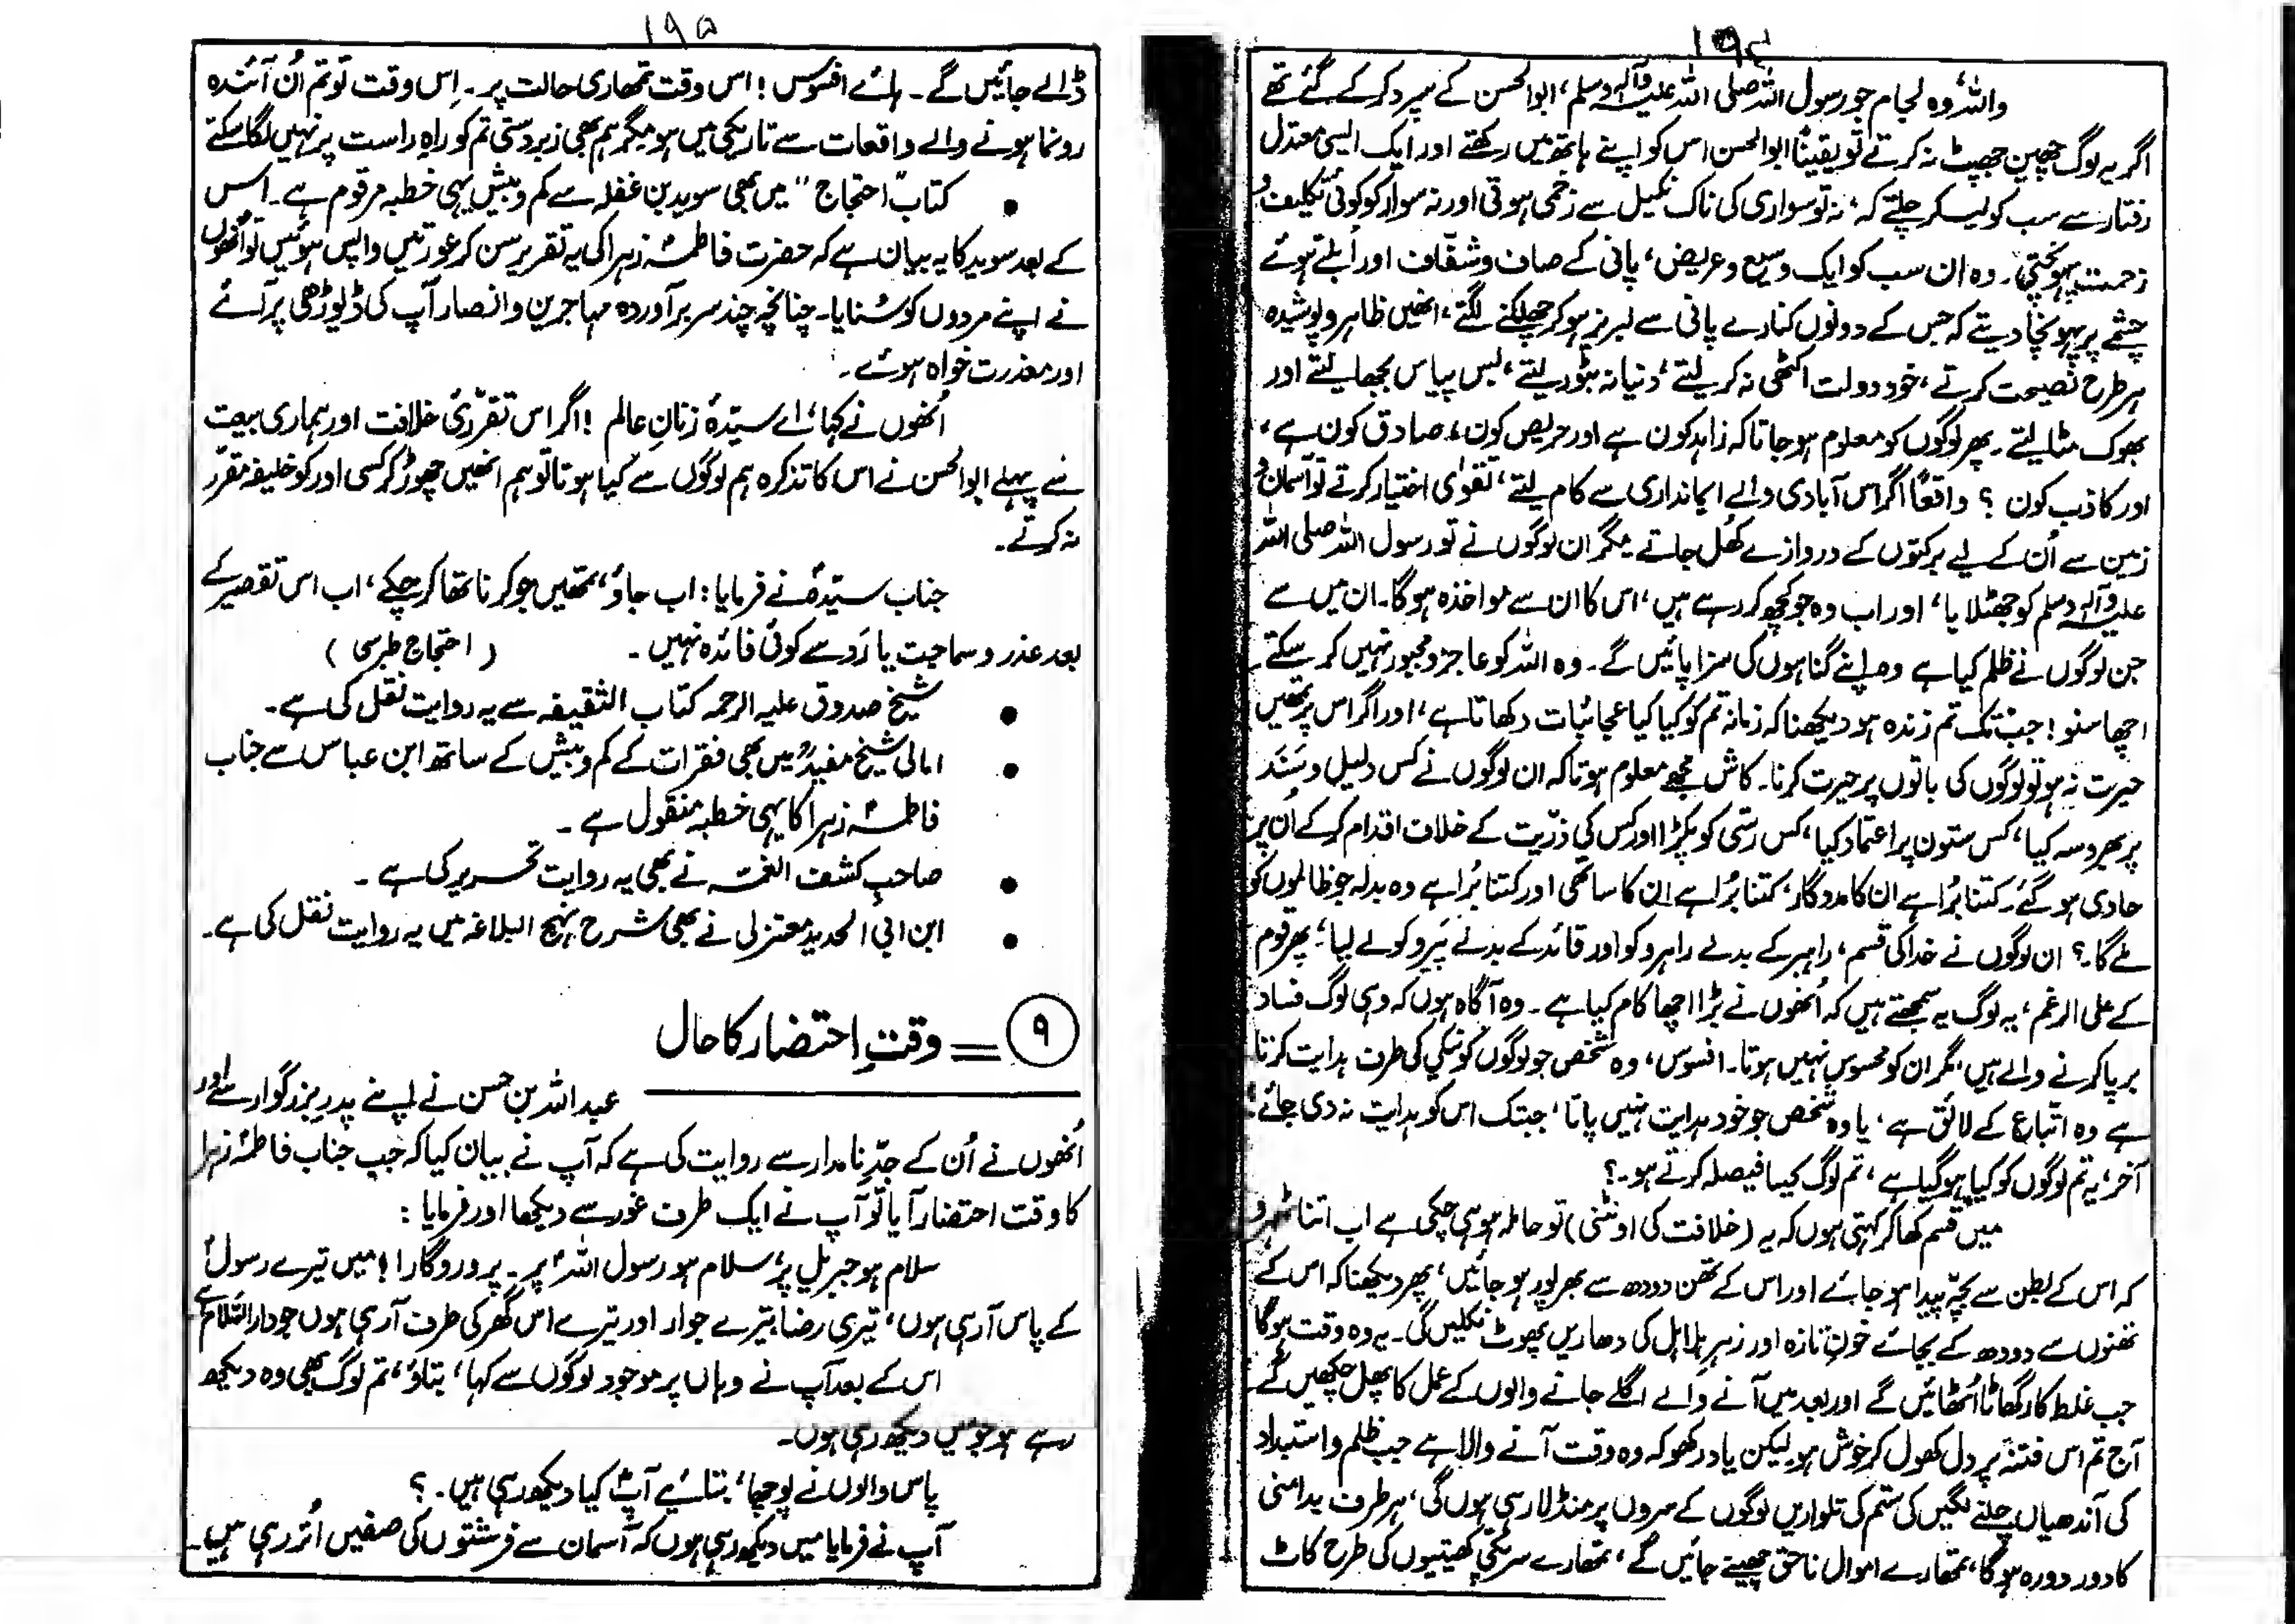 ۱۹۴
واللہ، وہ لجام جو رسول اللہ صلی اللہ علیہ وآلہ وسلم، ابوالحسن کے سپرد کر کے گئے تھے
اگر یہ لوگ چھین جھپٹ نہ کرتے تو یقیناً ابوالحسن اس کو اپنے ہاتھ میں رکھتے اور ایک ایسی معتدل
رفتار سے سب کو لیکر چلتے کہ، نہ تو سواری کی ناک نکیل سے زخمی ہوتی اور نہ سوار کو کوئی تکلیف و
زحمت پہونچتی۔ وہ ان سب کو ایک وسیع و عریض، پانی کے صاف و شفّاف اور اُبلتے ہوئے
چشمے پر پہونچا دیتے کہ جس کے دونوں کنارے پانی سے لبریز ہو کر چھلکنے لگتے، انھیں ظاہر و پوشیدہ
ہر طرح نصیحت کرتے، خود دولت اکٹھی نہ کر لیتے، دنیا نہ بٹور لیتے، بس پیاس بجھا لیتے اور
بھوک مٹا لیتے۔ پھر لوگوں کو معلوم ہو جاتا کہ زاہد کون ہے اور حریص کون، صادق کون ہے،
اور کاذب کون ؟ واقعاً اگر اس آبادی والے ایمانداری سے کام لیتے، تقوٰی اختیار کرتے تو آسمان و
زمین سے اُن کے لیے برکتوں کے دروازے کھُل جاتے مگر ان لوگوں نے تو رسول اللہ صلی اللہ
علیہ وآلہ وسلم کو جھٹلایا، اور اب وہ جو کچھ کر رہے ہیں، اس کا ان سے مواخذہ ہوگا۔ ان میں سے
جن لوگوں نے ظلم کیا ہے وہ اپنے گناہوں کی سزا پائیں گے۔ وہ اللہ کو عاجز و مجبور نہیں کر سکتے۔
اچھا سنو! جب تک تم زندہ ہو دیکھنا کہ زمانہ تم کو کیا کیا عجائبات دکھاتا ہے، اور اگر اس پر تمھیں
حیرت نہ ہو تو لوگوں کی باتوں پر حیرت کرنا۔ کاش مجھے معلوم ہوتا کہ ان لوگوں نے کس دلیل و سَنَد
پر بھروسہ کیا، کس ستون پر اعتماد کیا، کس رسّی کو پکڑا اور کس کی ذرّیت کے خلاف اقدام کر کے اُن پر
حاوی ہو گئے۔ کتنا بُرا ہے ان کا مددگار، کتنا بُرا ہے ان کا ساتھی اور کتنا بُرا ہے وہ بدلہ جو ظالموں کو
ملے گا۔؟ ان لوگوں نے خدا کی قسم، راہبر کے بدلے راہرو کو اور قائد کے بدلے پَیرو کو لے لیا، پھر قوم
کے علی الرغم، یہ لوگ یہ سمجھتے ہیں کہ اُنھوں نے بڑا اچھا کام کیا ہے۔ وہ آگاہ ہوں کہ وہی لوگ فساد
برپا کرنے والے ہیں، مگر ان کو محسوس نہیں ہوتا۔ افسوس، وہ شخص جو لوگوں کو نیکی کی طرف ہدایت کرتا
ہے وہ اتّباع کے لائق ہے، یا وہ شخص جو خود ہدایت نہیں پاتا، جبتک اس کو ہدایت نہ دی جائے؛
آخر، یہ تم لوگوں کو کیا ہو گیا ہے، تم لوگ کیسا فیصلہ کرتے ہو۔؟
میں قسم کھا کر کہتی ہوں کہ یہ (خلافت کی اونٹنی) تو حاملہ ہو ہی چکی ہے اب اتنا ٹھہرو
کہ اس کے بطن سے بچّہ پیدا ہو جائے اور اس کے تھن دودھ سے بھرپور ہو جائیں، پھر دیکھنا کہ اس کے
تھنوں سے دودھ کے بجائے خونِ تازہ اور زہرِ ہلاہل کی دھاریں پھوٹ نکلیں گی۔ یہ وہ وقت ہوگا
جب غلط کار گھاٹا اُٹھائیں گے اور بعد میں آنے والے اگلے جانے والوں کے عمل کا پھل چکھیں گے۔
آج تم اس فتنہ پر دل کھول کر خوش ہو لیکن یاد رکھو کہ وہ وقت آنے والا ہے جب ظلم و استبداد
کی آندھیاں چلنے لگیں گی ستم کی تلواریں لوگوں کے سروں پر منڈلا رہی ہوں گی، ہر طرف بدامنی
کا دور دورہ ہوگا، تمھارے اموال ناحق چھینے جائیں گے، تمھارے سر پکی کھیتیوں کی طرح کاٹ
۱۹۵
ڈالے جائیں گے۔ ہائے افسوس! اس وقت تمھاری حالت پر۔ اِس وقت تو تم اُن آئندہ
رونما ہونے والے واقعات سے تاریکی میں ہو مگر ہم بھی زبردستی تم کو راہِ راست پر نہیں لگا سکتے
● کتاب "احتجاج" میں بھی سوید بن غفلہ سے کم و بیش یہی خطبہ مرقوم ہے۔ اس
کے بعد سوید کا یہ بیان ہے کہ حضرت فاطمہ زہرا کی یہ تقریر سن کر عورتیں واپس ہوئیں تو اُنھوں
نے اپنے مردوں کو سُنایا۔ چنانچہ چند سربرآوردہ مہاجرین و انصار آپ کی ڈیوڑھی پر آئے
اور معذرت خواہ ہوئے۔
اُنھوں نے کہا، اے سیّدۂ زنانِ عالم! اگر اس تقرّریٔ خلافت اور ہماری بیعت
سے پہلے ابوالحسن نے اس کا تذکرہ ہم لوگوں سے کیا ہوتا تو ہم انھیں چھوڑ کر کسی اور کو خلیفہ مقرّر
نہ کرتے۔
جناب سیّدہؑ نے فرمایا: اب جاؤ، تمھیں جو کرنا تھا کر چکے، اب اس تقصیر کے
بعد عذر و سماجت یا رَد سے کوئی فائدہ نہیں۔ ( احتجاج طبرسی )
● شیخ صدوق علیہ الرحمہ کتاب الثقیفہ سے یہ روایت نقل کی ہے۔
● امالی شیخ مفیدؒ میں بھی فقرات کے کم و بیش کے ساتھ ابن عباس سے جناب
فاطمہؑ زہرا کا یہی خطبہ منقول ہے ۔
● صاحبِ کشف الغمّہ نے بھی یہ روایت تحریر کی ہے ۔
● ابن ابی الحدید معتزلی نے بھی شرح نہج البلاغہ میں یہ روایت نقل کی ہے۔
۹ = وقتِ احتضار کا حال
عبداللہ بن حسن نے اپنے پدرِ بزرگوار سے اور
اُنھوں نے اُن کے جدِّ نامدار سے روایت کی ہے کہ آپ نے بیان کیا کہ جب جناب فاطمہؑ زہرا
کا وقت احتضار آیا تو آپ نے ایک طرف غور سے دیکھا اور فرمایا :
سلام ہو جبریل پر، سلام ہو رسول اللہ پر۔ پروردگارا! میں تیرے رسولؐ
کے پاس آ رہی ہوں، تیری رضا، تیرے جوار اور تیرے اس گھر کی طرف آ رہی ہوں جو دارالسّلام ہے
اس کے بعد آپ نے وہاں پر موجود لوگوں سے کہا، بتاؤ، تم لوگ بھی وہ دیکھ
رہے ہو جو میں دیکھ رہی ہوں۔
پاس والوں نے پوچھا، بتائیے آپؑ کیا دیکھ رہی ہیں۔؟
آپ نے فرمایا میں دیکھ رہی ہوں کہ آسمان سے فرشتوں کی صفیں اُتر رہی ہیں۔